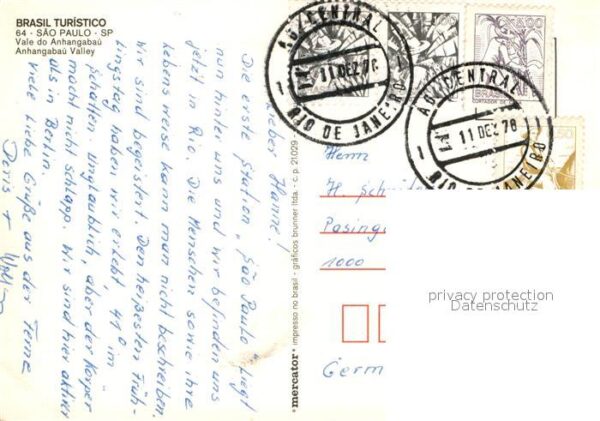 BRASIL TURÍSTICO
64 - SÃO PAULO - SP
Vale do Anhangabaú
Anhangabaú Valley
Lieber Hanne!
Die erste Station "São Paulo" liegt
nun hinter uns und wir befinden uns
jetzt in Rio. Die Menschen sowie ihre
Lebensweise kann man nicht beschreiben.
Wir sind begeistert. Den heißesten Früh-
lingstag haben wir erlebt 41° im
Schatten. Unglaublich, aber der Körper
macht nicht schlapp. Wir sind hier aktiver
als in Berlin.
Viele liebe Grüße aus der Ferne
Doris +
*mercator* impresso no brasil - gráficos brunner ltda. - c.p. 21.029
AG. CENTRAL
11 DEZ 78
RIO DE JANEIRO
AG. CENTRAL
11 DEZ 78
RIO DE JANEIRO
BRASIL
Herrn
H.
Pasing
1000
Germ
privacy protection
Datenschutz